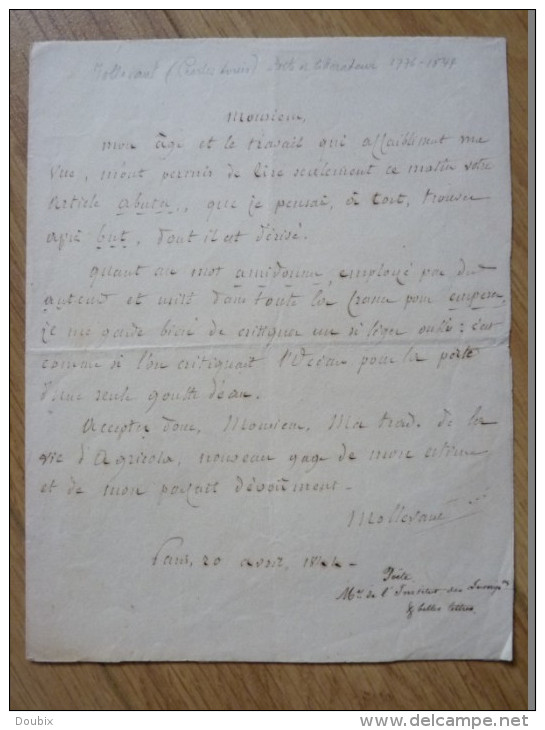 Mollevaut (Charles Louis) Poète et littérateur 1776-1844
Monsieur,
mon âge et le travail qui affaiblissent ma
vue, m'ont permis de lire seulement ce matin votre
article abuter, que je pensai, à tort, trouver
après but, dont il est dérivé.
quant au mot amidonner, employé par des
auteurs et usité dans toute la france pour empeser,
je me garde bien de critiquer un si léger oubli; c'est
comme si l'on critiquait l'Océan pour la perte
d'une seule goutte d'eau.
Acceptez donc, Monsieur, Ma trad. de la
vie d'Agricola, nouveau gage de mon estime
et de mon parfait dévoûment.
Mollevaut
Paris, 20 avril, 1844.
Poète
Mre de l'Institut des Inscrip
& belles lettres
Doubix
www.delcampe.net